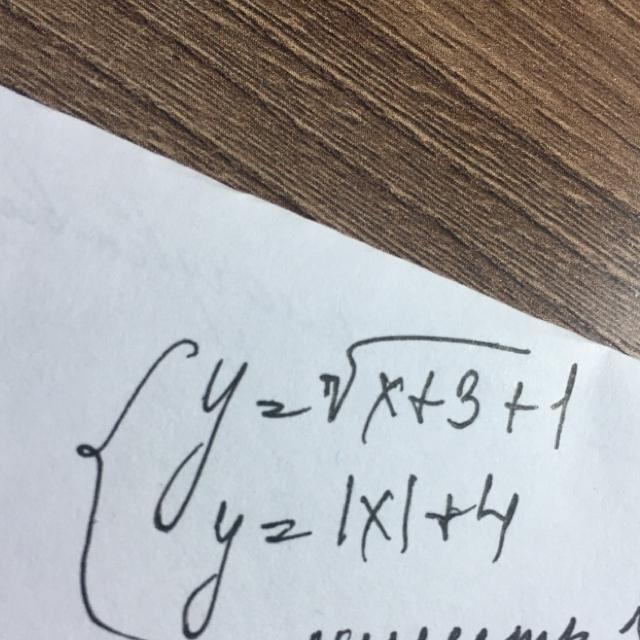 y = √x+3 + 1
y = |x| + 4